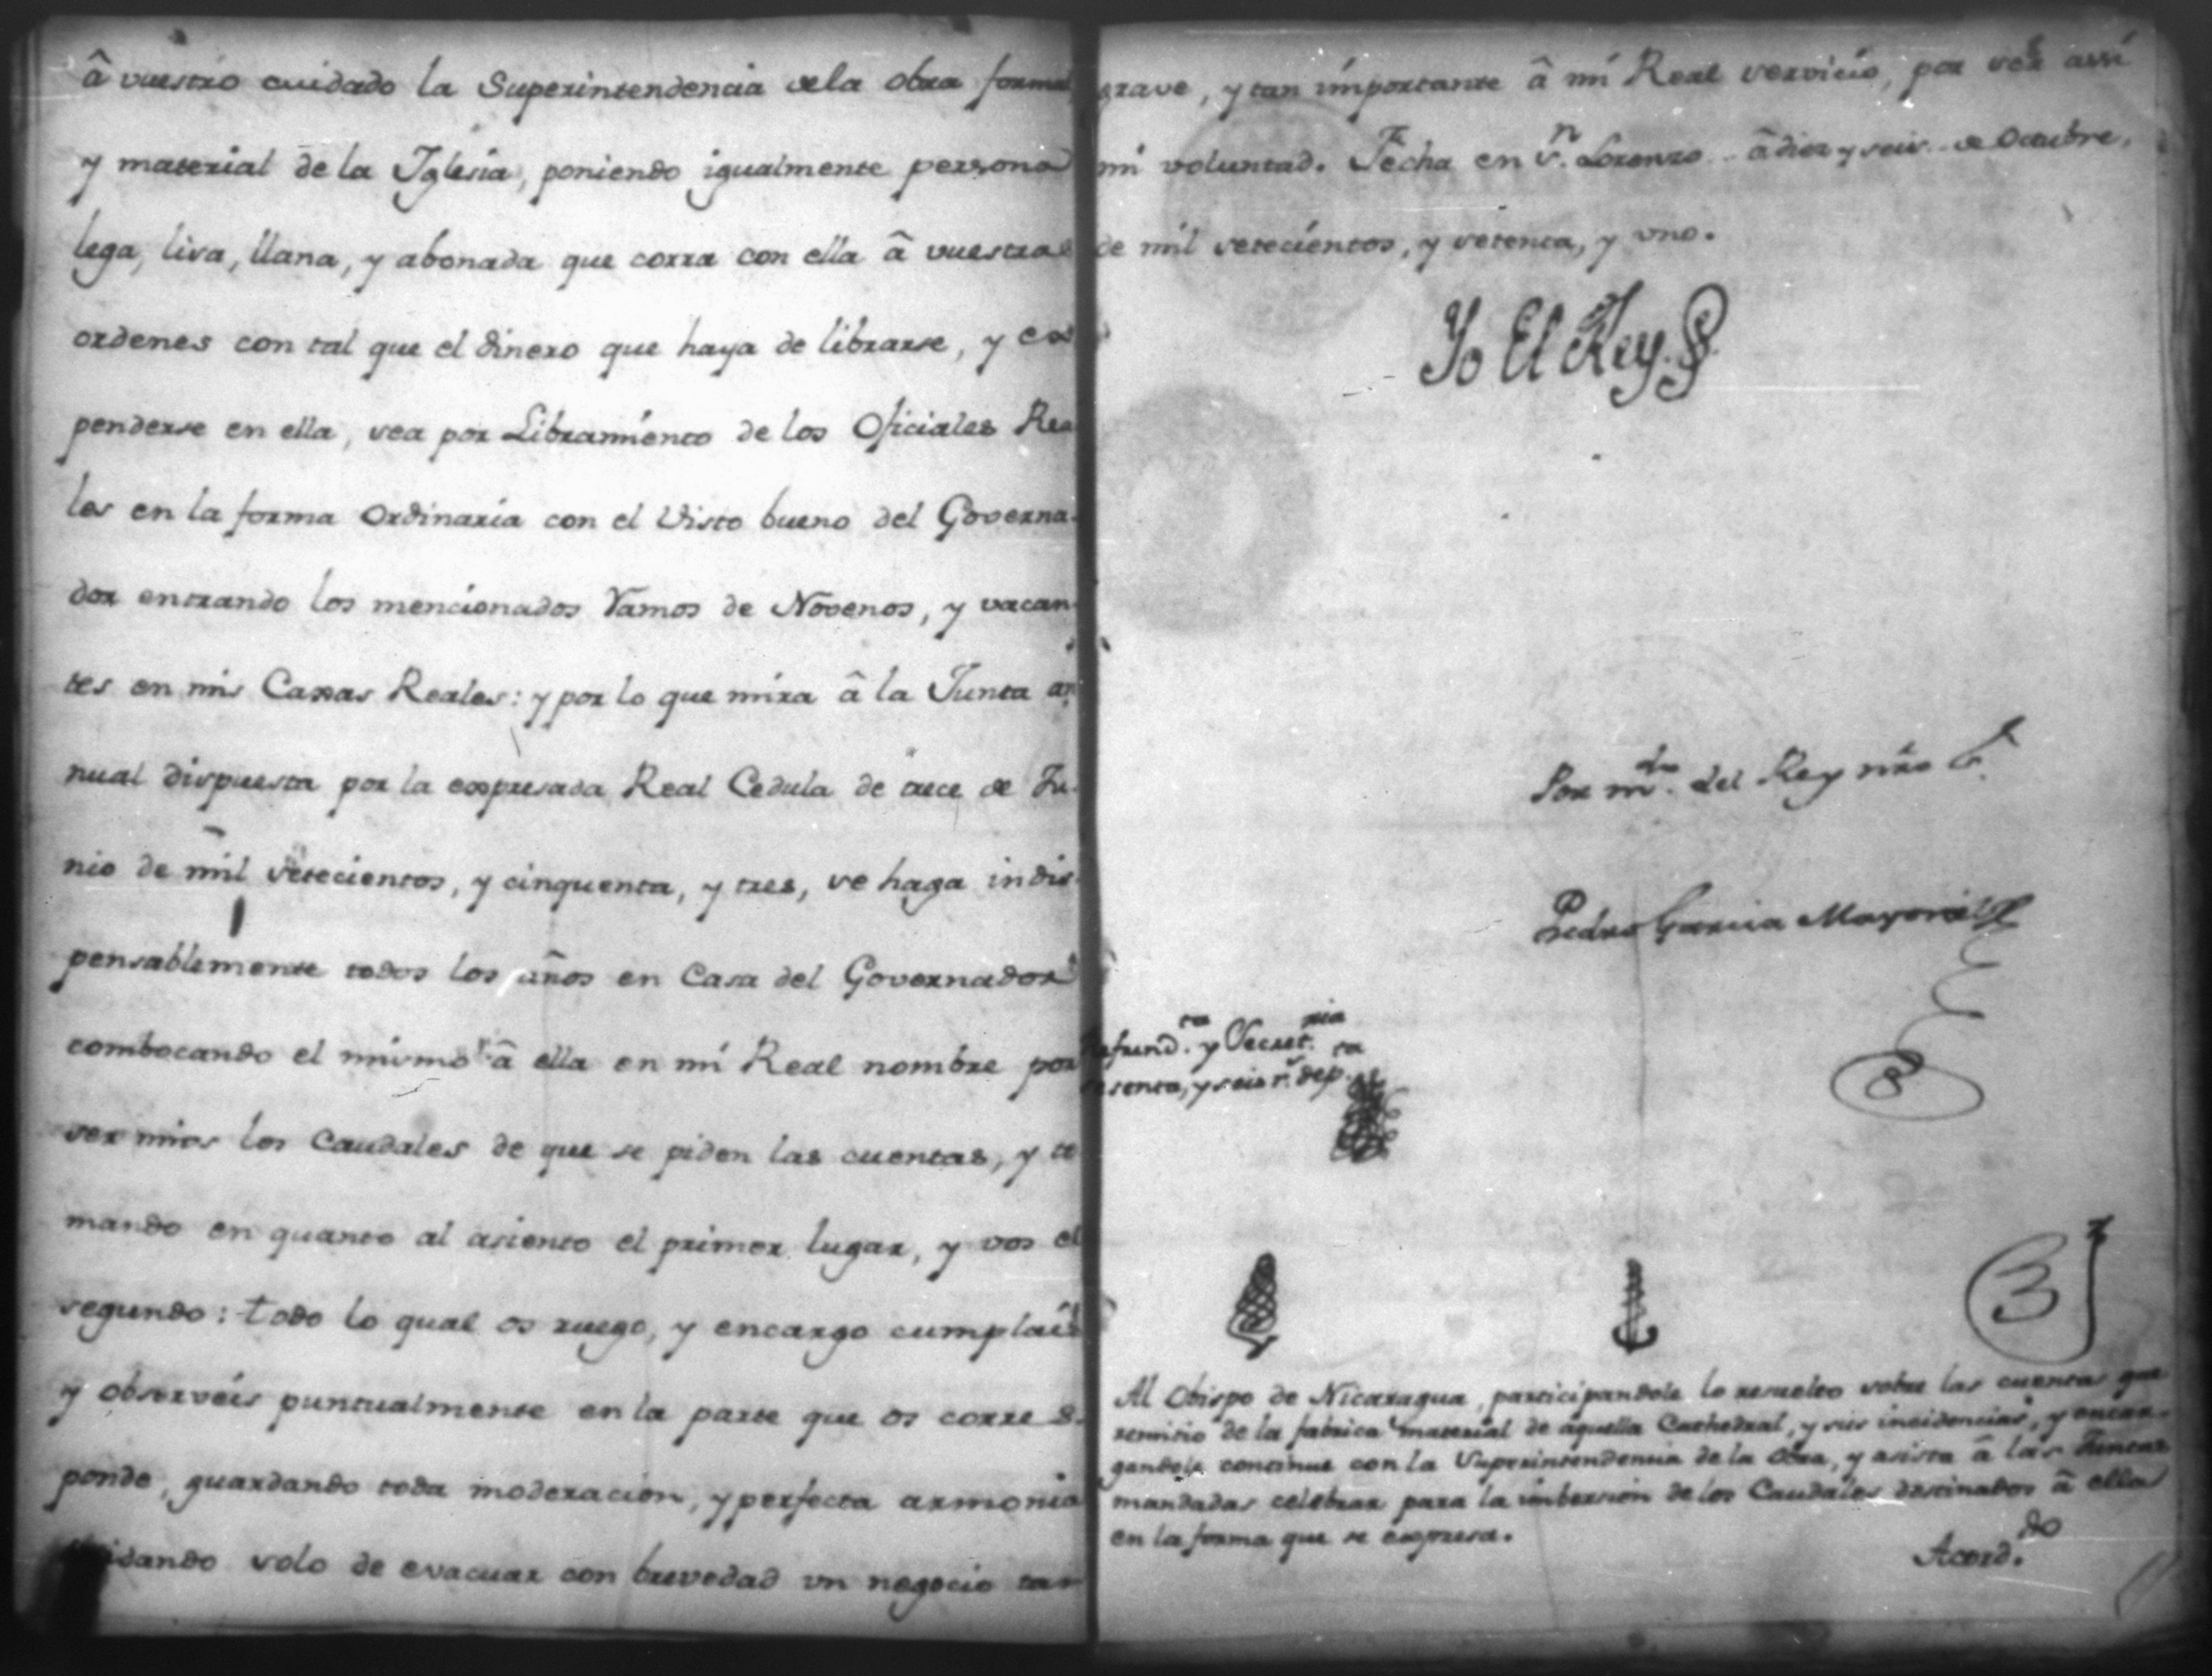 â vuestro cuidado la Superintendencia dela obra formal,
y material de la Iglesia, poniendo igualmente persona
lega, lisa, llana, y abonada que corra con ella â vuestras
ordenes con tal que el dinero que haya de librarse, y es
penderse en ella, sea por Libramiento de los Oficiales Rea
les en la forma Ordinaria con el Visto bueno del Governa-
dor entrando los mencionados Ramos de Novenos, y vacan-
tes en mis Caxas Reales: y por lo que mira â la Junta an
nual dispuesta por la expresada Real Cedula de trece de Ju-
nio de mil setecientos, y cinquenta, y tres, se haga indis
pensablemente todos los años en Casa del Governador
combocando el mismo â ella en mi Real nombre por
ser mios los Caudales de que se piden las cuentas, y to
mando en quanto al asiento el primer lugar, y vos el
segundo: todo lo qual os ruego, y encargo cumplais
y observeis puntualmente en la parte que os corres-
ponde, guardando toda moderacion, y perfecta armonia
cuidando solo de evacuar con brevedad un negocio tan
grave, y tan importante â mi Real servicio, por ser assi
mi voluntad. Fecha en Sn. Lorenzo â diez y seis de Octubre,
de mil setecientos, y setenta, y uno.
Yo El Rey
Por mdo. del Rey nro Sr.
Pedro Garcia Mayoral
Refrendta. y Secretria
sesenta, y seis rs. de pta
Al Obispo de Nicaragua, participandole lo resuelto sobre las cuentas que
remitio de la fabrica material de aquella Cathedral, y sus incidencias, y encar-
gandole continue con la Superintendencia de la Obra, y asista â las Juntas
mandadas celebrar para la imbersion de los Caudales destinados â ella
en la forma que se expresa.
Acorddo.